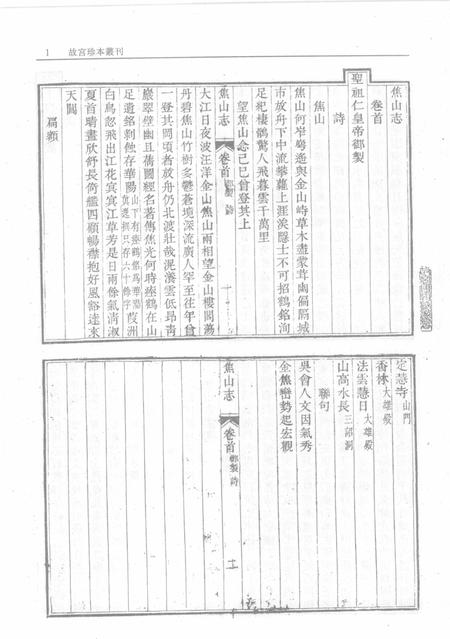 1 故宮珍本叢刊
焦山志
卷首
聖祖仁皇帝御製
詩
焦山
焦山何崒嵂遙與金山峙草木盡蒙茸幽偏隔城
市放舟下中流攀蘿上涯涘隱士不可招鶴銘洵
足紀棲鶻驚人飛暮雲千萬里
望焦山念己巳曾登其上
焦山志 卷首 御製 詩
大江日夜波汪洋金山焦山兩相望金山樓閣蕩
丹碧焦山竹樹多鬱蒼境深流廣人罕至往年曾
一登其岡頃者放舟仍北渡壯哉泥瀁雲低昂靑
巖翠壁幽且蒨圖經名著傳焦光何時瘞鶴在山
足遺銘剝蝕存華陽山下有瘞鶴銘爲華陽眞逸撰只存六十餘字葭洲
白鳥忽飛出江花賓賓江草芳是日雨餘氣淸淑
夏首晴晝欣舒長倚艦四顧暢襟抱好風谿達來
天閶
扁額
定慧寺山門
香林大雄殿
法雲慧日大雄殿
山高水長三詔洞
聯句
吳會人文因氣秀
金焦巒勢起宏觀
焦山志 卷首 御製 詩